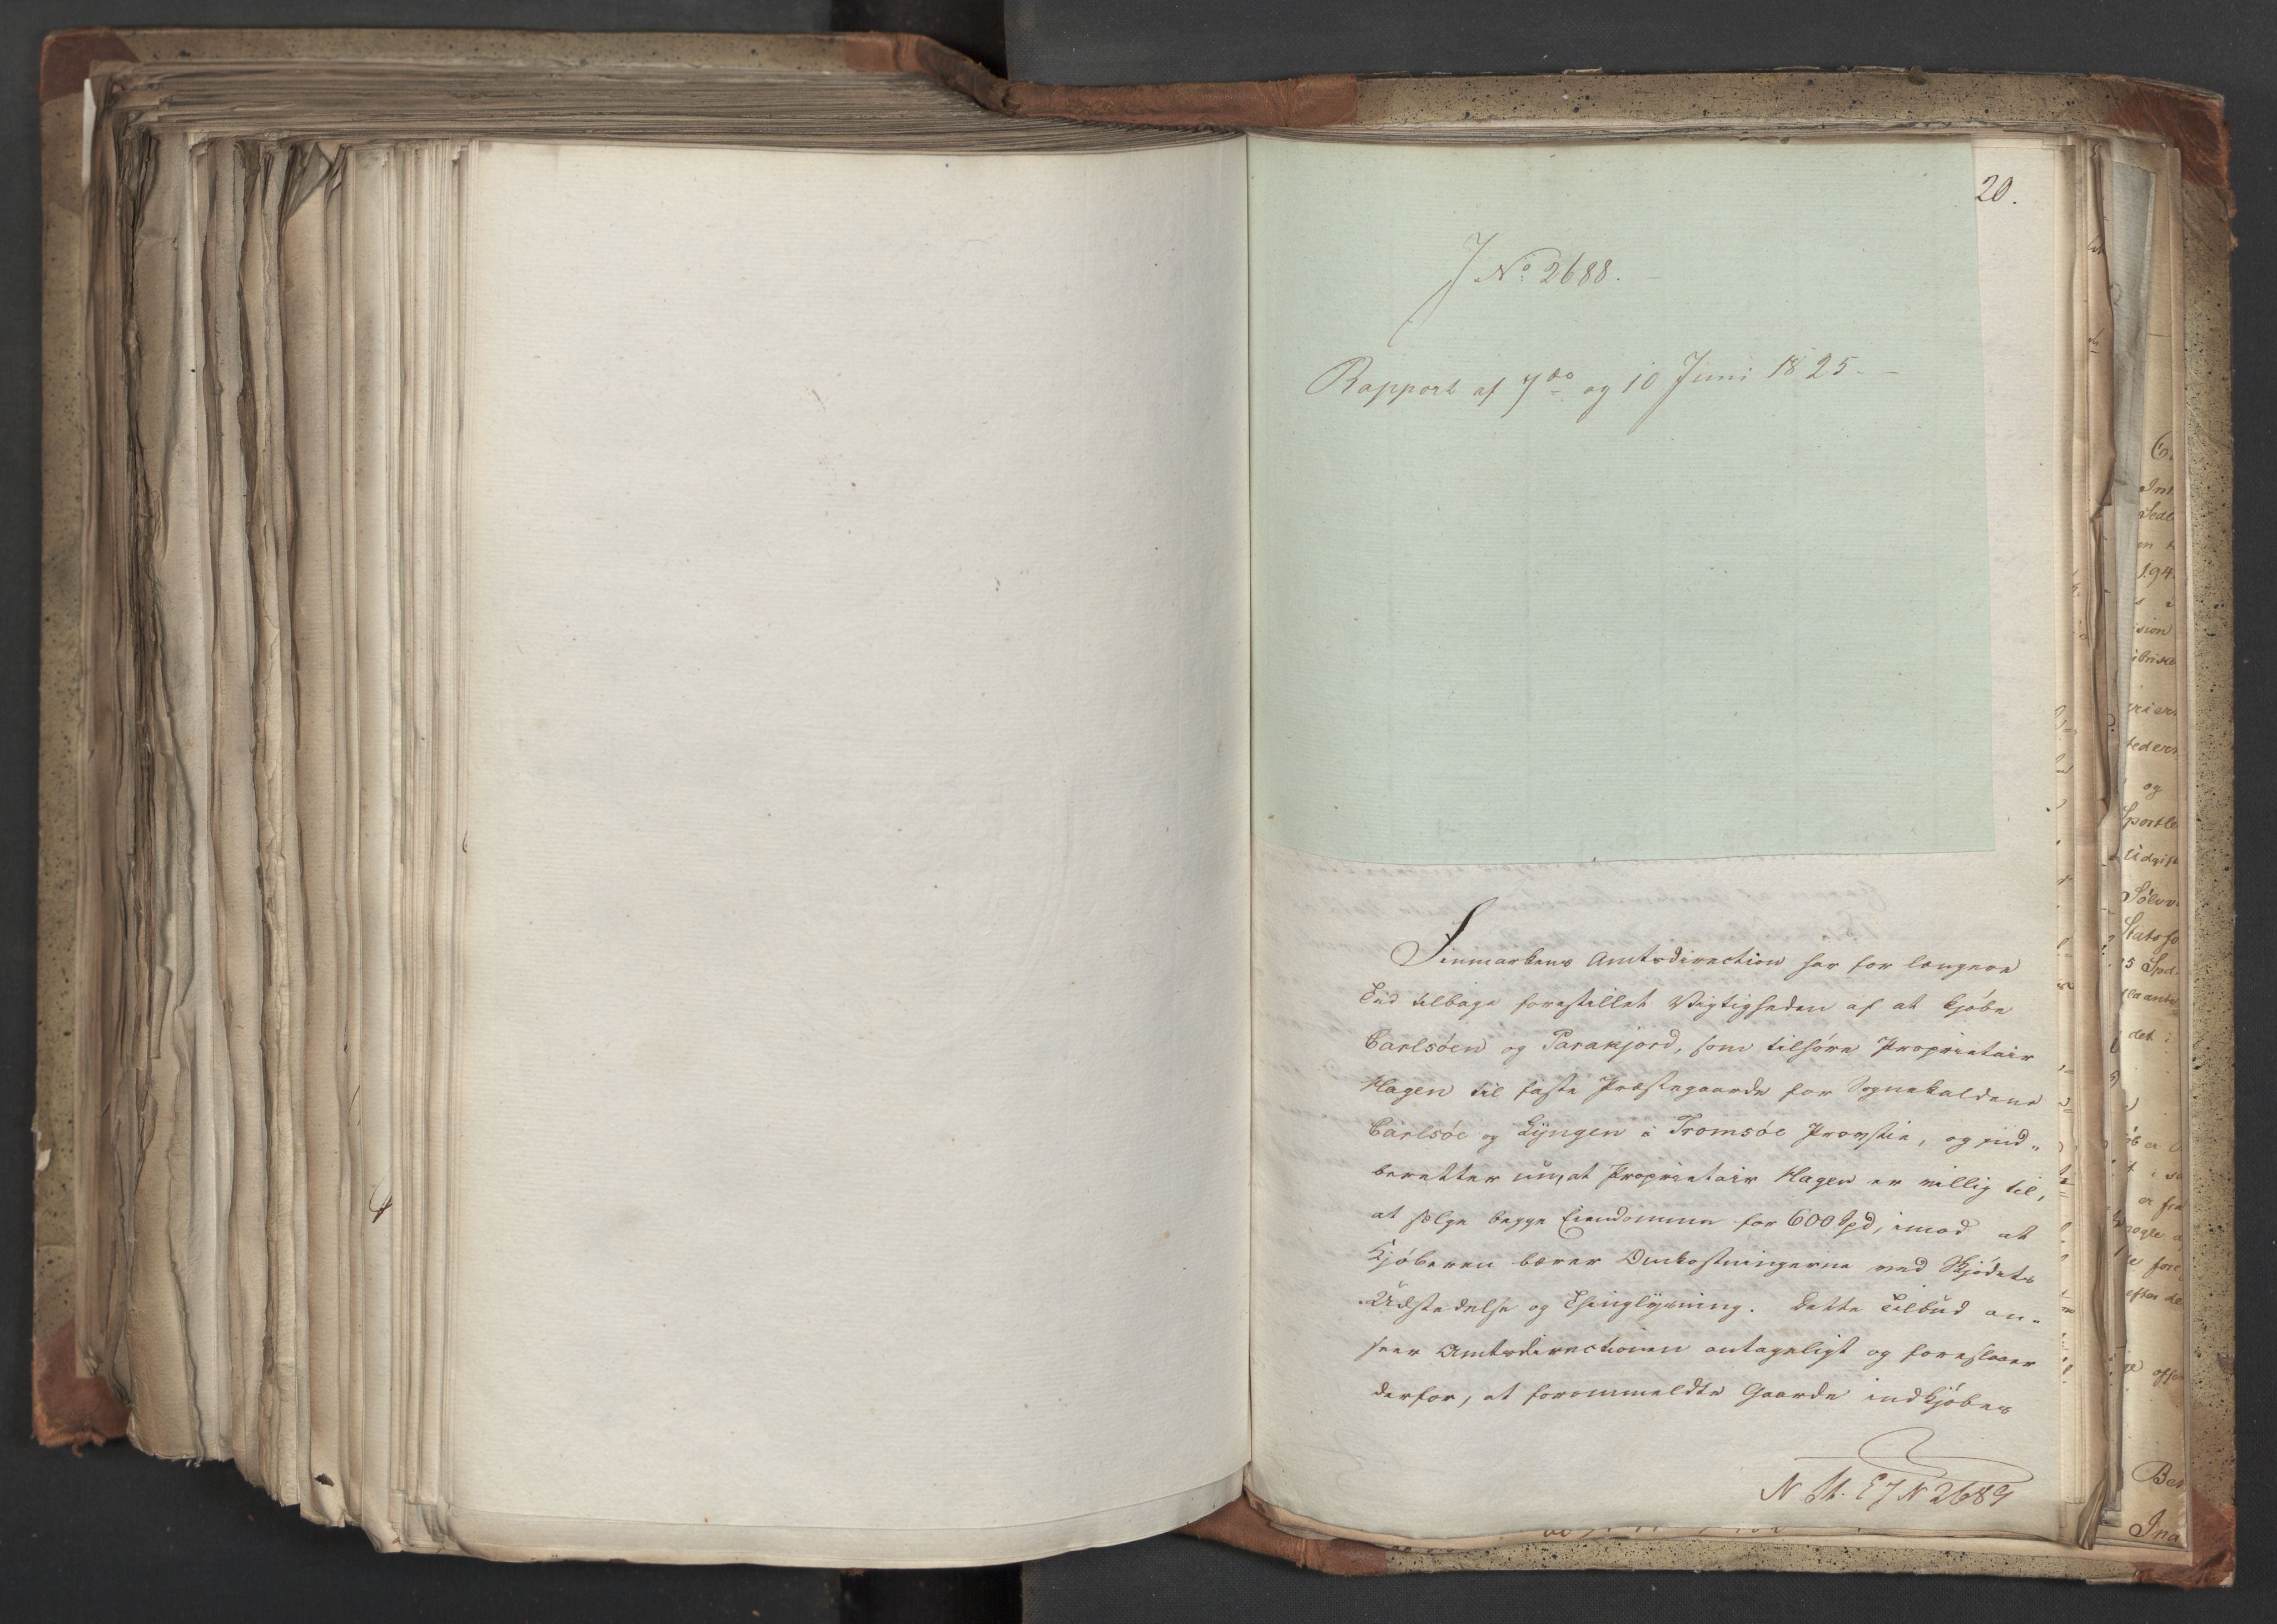 20.
J No 2688.
Rapport af 7de og 10 Juni 1825.
Finmarkens Amtsdirection har for længere
Tid tilbage forestillet Vigtigheden af at kjöbe
Carlsöen og Parakjord, som tilhöre Proprietair
Hagen til faste Præstegaarde for Sognekaldene
Carlsöe og Lyngen i Tromsöe Provstie, og ind„
beretter nu, at Proprietair Hagen er villig til,
at sælge begge Eiendomme for 600 Spd, imod at
Kjöberen bærer Omkostningerne ved Skjödets
Udstedelse og Thinglysning. Dette Tilbud an„
seer Amtsdirectionen antageligt og foreslaaer
derfor, at forommeldte Gaarde indkjöbes
2689